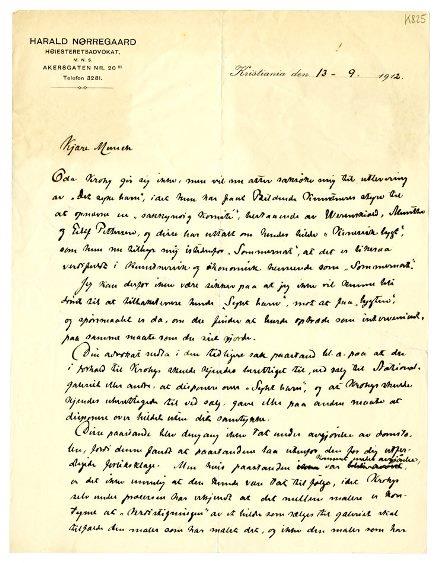 K825
HARALD NØRREGAARD
HØIESTERETSADVOKAT.
M. N. S.
AKERSGATEN NR. 20 III
Telefon 3281.
Kristiania den 13 - 9. 1912.
Kjære Munch
Oda Krohg gir sig ikke, men vil nu atter saksøke mig til utlevering
av „Det syke barn", idet hun har faat Bildende Kunstneres styre til
at opnævne en „sakkyndig komité", bestaaende av Werenskiold,
og Eilif Peterssen, og disse har uttalt om hendes billede
som hun nu tilbyr mig istedenfor „Sommernat", at det er likesaa
verdifuldt i kunstnerisk og økonomisk henseende som „Sommernat".
Jeg kan derfor ikke være sikker paa at jeg ikke vil kunne bli
dømt til at tilbakelevere hende „Sykt barn", mot at faa
og spørsmaalet er da, om du finder at burde optræde som intervenient,
paa samme maate som du sist gjorde.
Din advokat nedla i den tidligere sak paastand bl. a. paa at du
i forhold til Krohgs skulde kjendes berettiget til, ved salg til National-
galleriet eller andre, at disponere over „Sykt barn", og at Krohgs skulde
kjendes uberettiget til ved salg, gave eller paa anden maate at
disponere over billedet uten ditt samtykke.
Denne paastand blev dengang ikke tat under avgjørelse av domsto-
len, fordi denne fandt at paastanden laa utenfor den for dig utfær-
digede forliksklage. Men hvis paastanden var kommet under avgjørelse,
er det ikke umulig at den kunde være tat til følge, idet Krohgs
selv under processen har erkjendt at det mellem malere er kon-
tyme at av et billede som sælges til galleriet skal
tilfalde den maler som har malet det, og ikke den maler som har